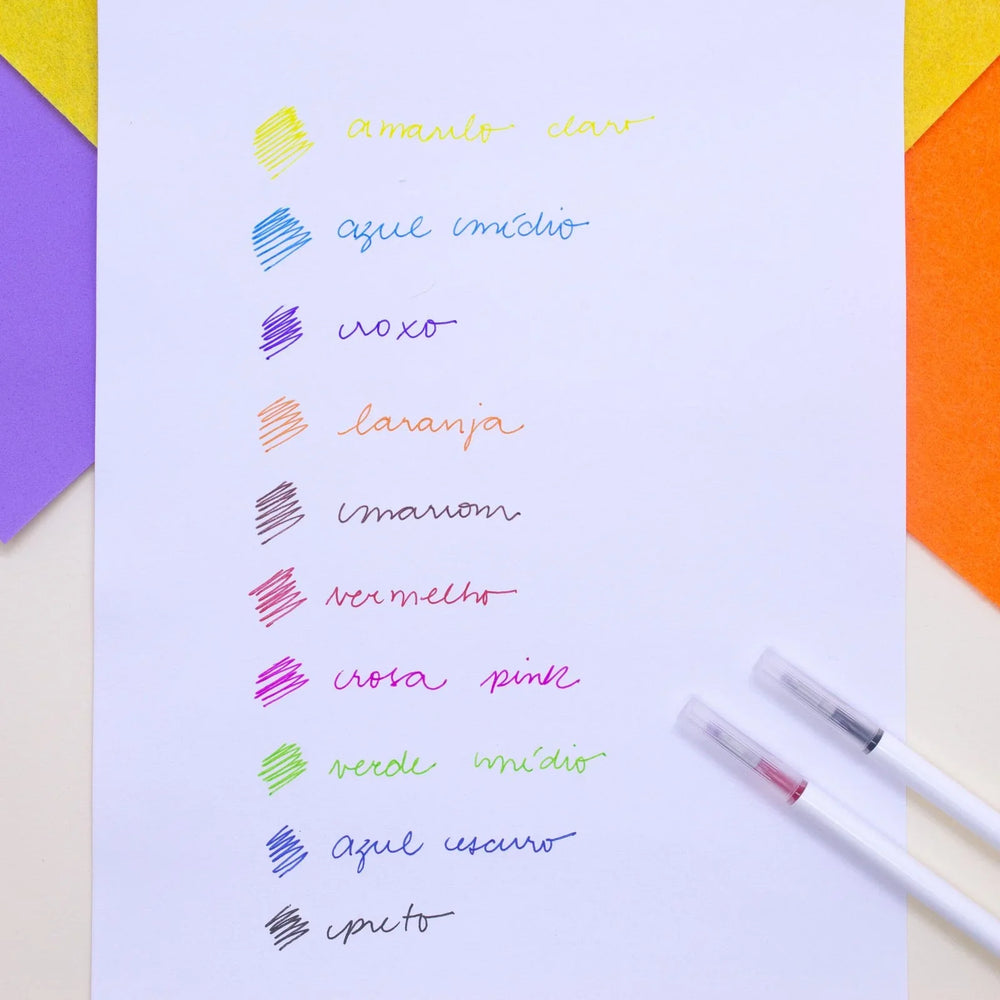 amarelo claro
azul médio
roxo
laranja
marrom
vermelho
rosa pink
verde médio
azul escuro
preto